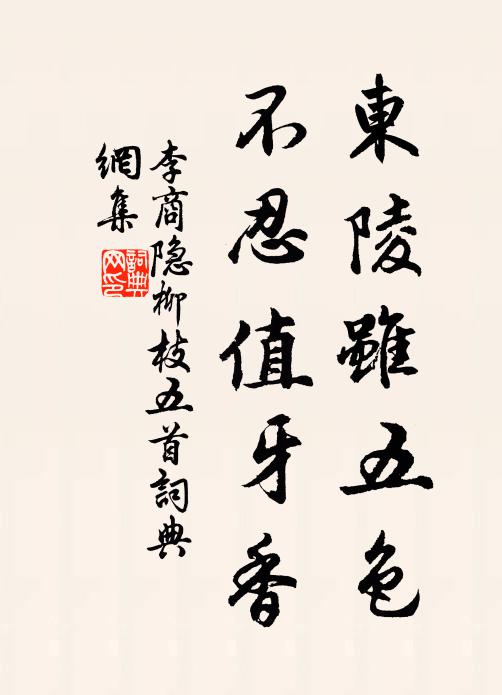 東陵雖五色
不忍值牙香
李商隐柳枝五首詞典
網集
詞典网印